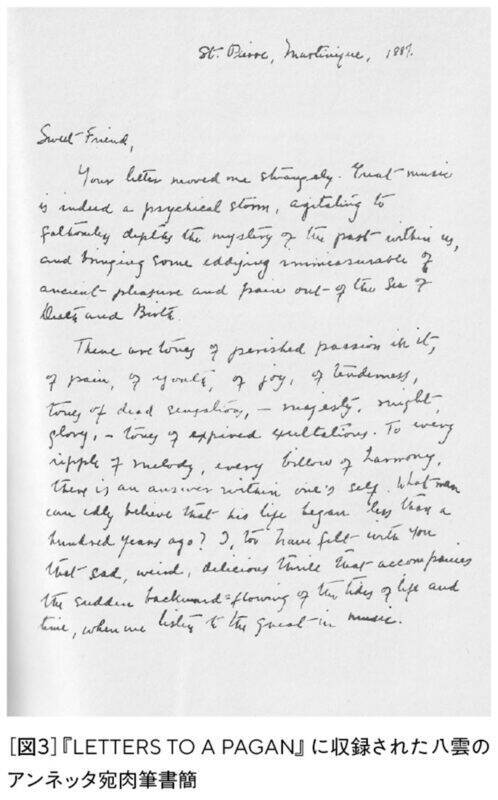 St. Pierre, Martinique, 1887.
Sweet Friend,
Your letter moved me strangely. Great music
is indeed a psychical storm, agitating to
fathomless depths the mystery of the past within us,
and bringing some eddying immeasurable of
ancient pleasure and pain out of the Sea of
Death and Birth.
There are tones of perished passion in it,
of pain, of youth, of joy, of tenderness,
tones of dead sensation, – majesty, might,
glory, – tones of expired exultations. To every
ripple of melody, every billow of harmony,
there is an answer within one's self. What man
can idly believe that his life began less than a
hundred years ago? I, too have felt with you
that sad, weird, delicious thrill that accompanies
the sudden backward=flowing of the tides of life and
time, when we listen to the great in music.
[図3]『LETTERS TO A PAGAN』に収録された八雲の
アンネッタ宛肉筆書簡